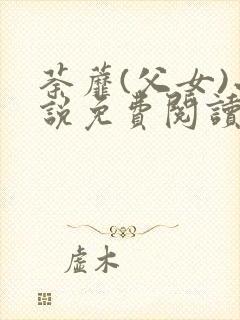 荼蘼(父女)
說免費閱讀
虛木